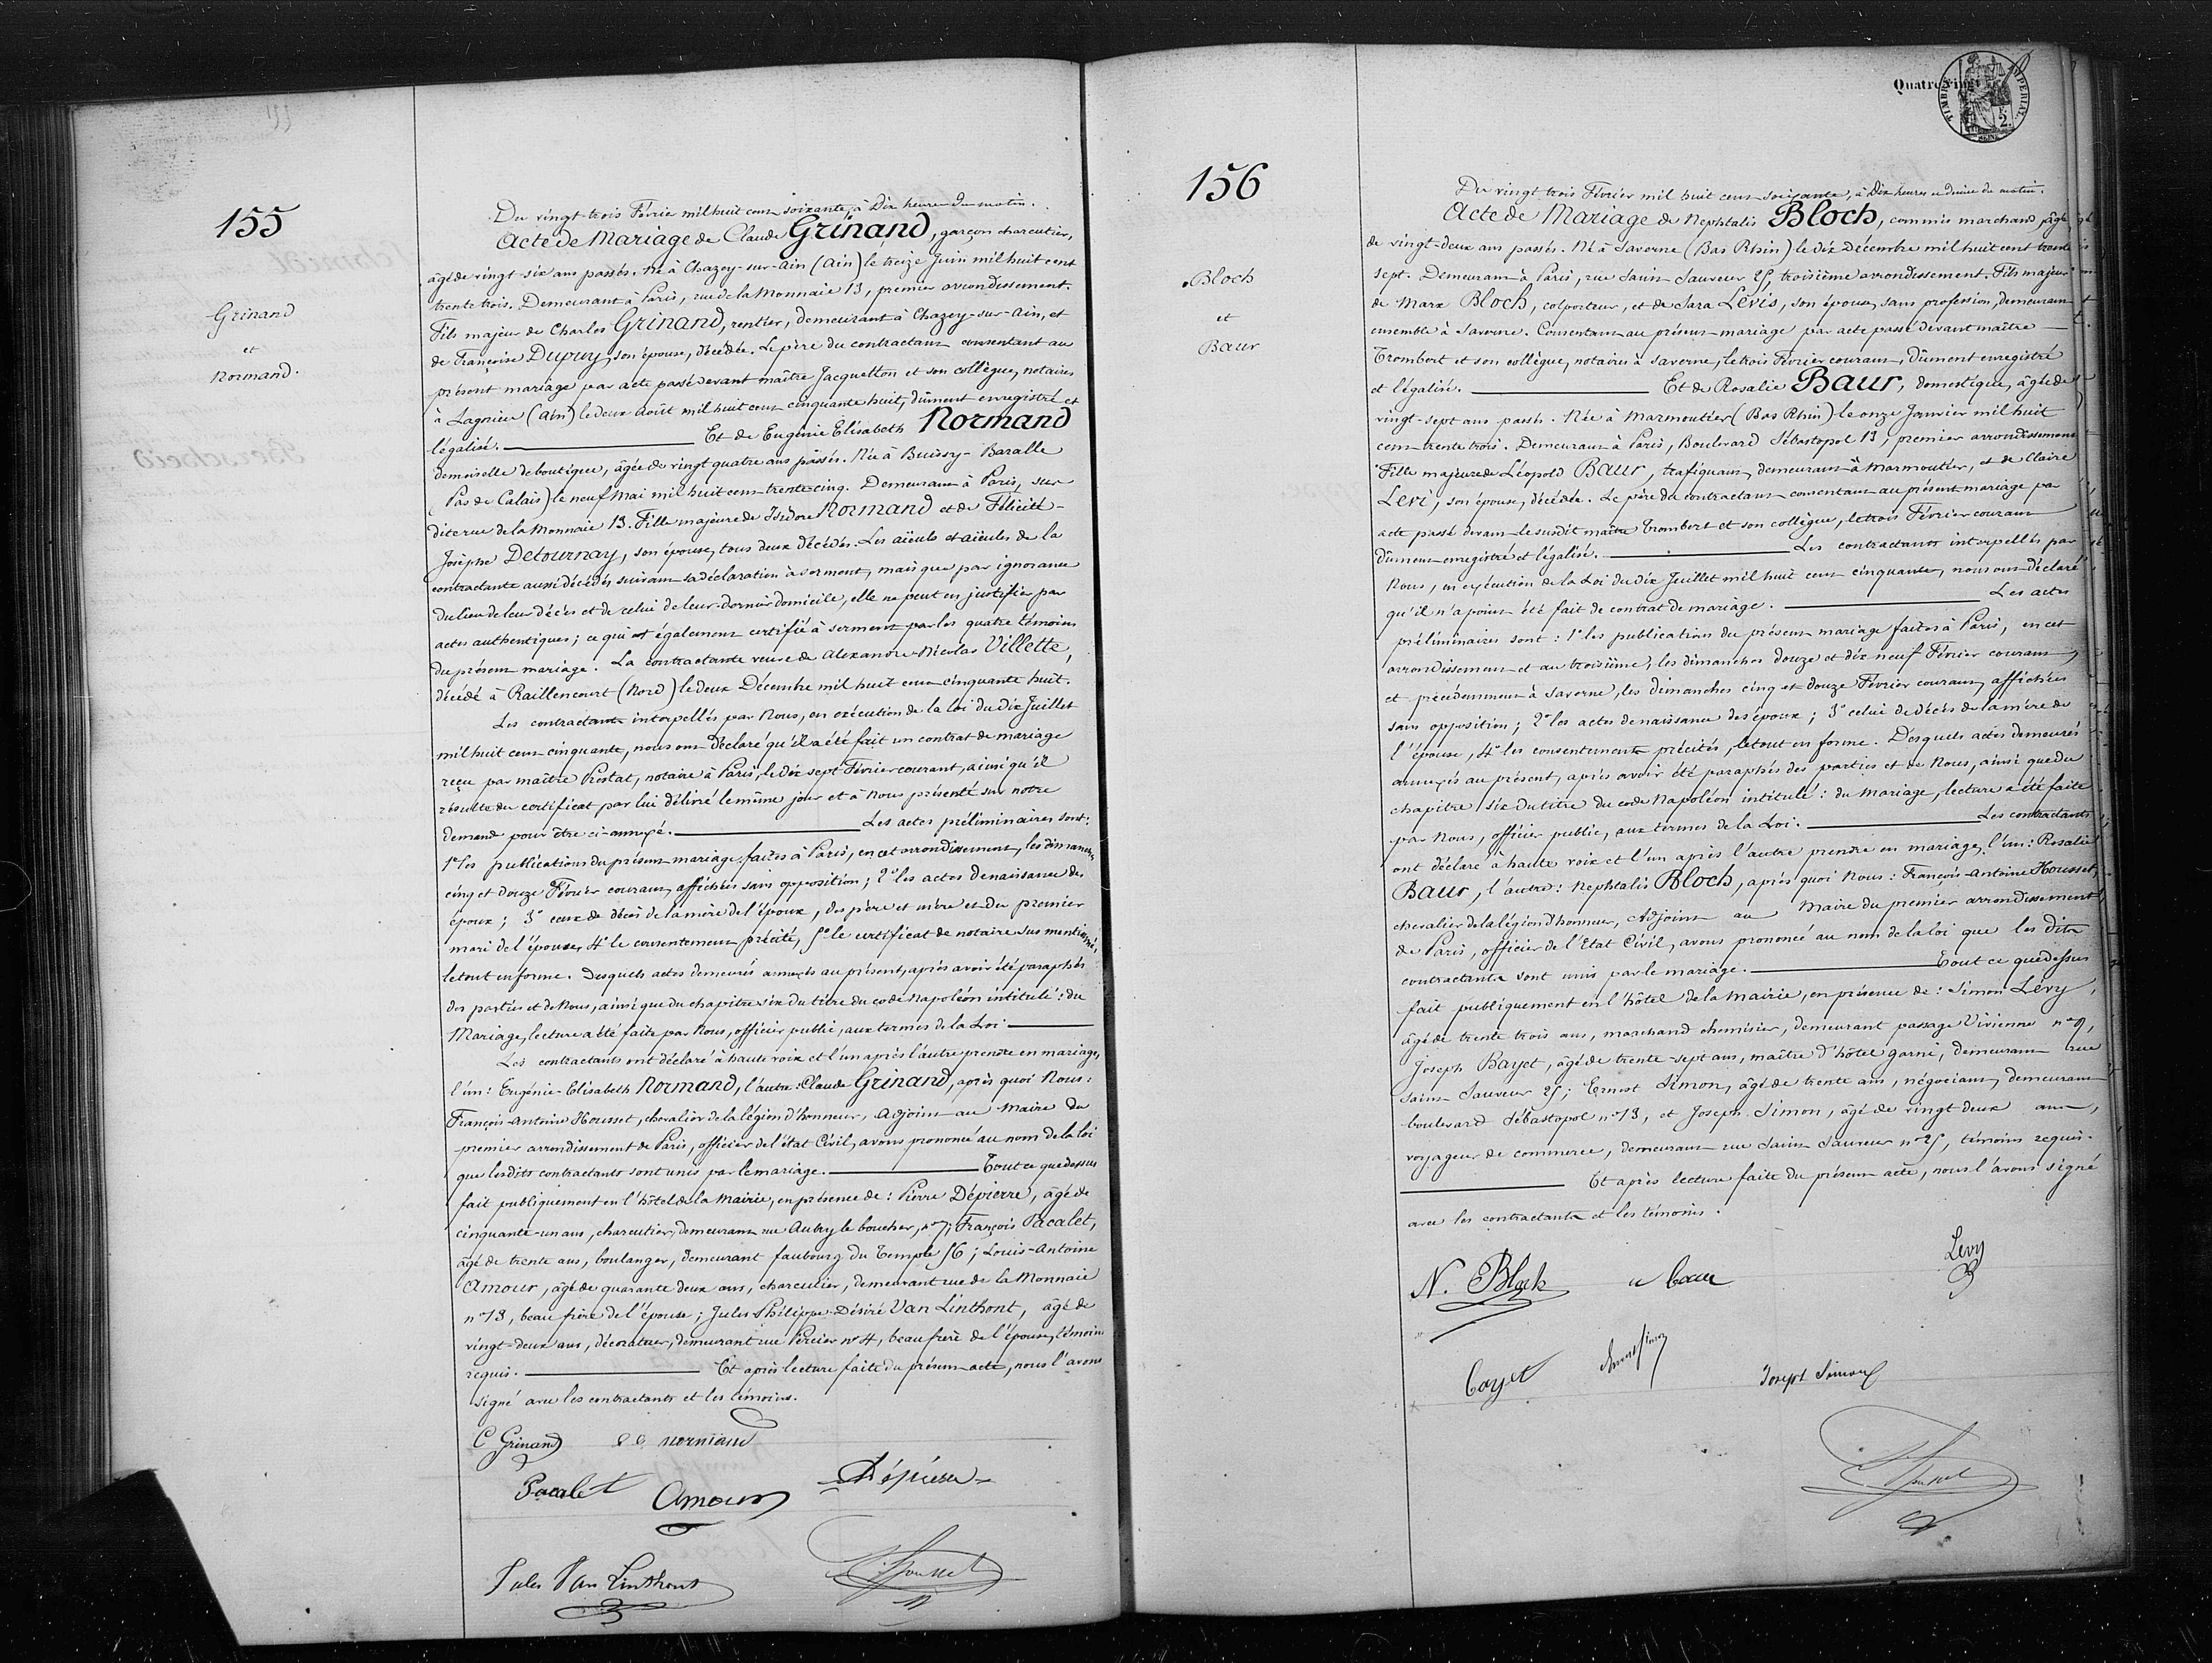 155
Grinand
et
Normand.
Du vingt-trois Février mil huit cent soixante, à Dix heures du matin.
Acte de Mariage de Claude Grinand, garçon charcutier,
âgé de vingt-six ans passés. Né à Chazey-sur-Ain (Ain) le treize Juin mil huit cent
trente trois. Demeurant à Paris, rue de la Monnaie 13, premier arrondissement.
Fils majeur de Charles Grinand, rentier, demeurant à Chazey-sur-Ain, et
de Françoise Dupuy, son épouse, décédée. Le père du contractant consentant au
présent mariage par acte passé devant maître Jacquetton et son collègue, notaires
à Lagnieu (Ain) le deux Août mil huit cent cinquante huit, dûment enregistré et
légalisé. Et de Eugénie Elisabeth Normand
demoiselle de boutique, âgée de vingt quatre ans passés. Née à Buissy-Baralle
(Pas de Calais) le neuf Mai mil huit cent trente cinq. Demeurant à Paris, sus
dite rue de la Monnaie 13. Fille majeure de Isidore Normand et de Félicité-
Josèphe Detournay, son épouse, tous deux décédés. Les aïeuls et aïeules de la
contractante aussi décédés suivant sa déclaration à serment, mais que par ignorance
du lieu de leur décès et de celui de leur dernier domicile, elle ne peut en justifier par
actes authentiques; ce qui est également certifié à serment par les quatre témoins
du présent mariage. La contractante veuve de Alexandre-Nicolas Villette,
décédé à Raillencourt (Nord) le deux Décembre mil huit cent cinquante huit.
Les contractants interpellés par Nous, en exécution de la loi du dix Juillet
mil huit cent cinquante, nous ont déclaré qu'il a été fait un contrat de mariage
reçu par maître Prestat, notaire à Paris, le dix sept Février courant, ainsi qu'il
résulte du certificat par lui délivré le même jour et à Nous présenté sur notre
demande pour être ci-annexé. Les actes préliminaires sont:
1° les publications du présent mariage faites à Paris, en cet arrondissement, les dimanches
cinq et douze Février courant, affichées sans opposition; 2° les actes de naissance des
époux; 3° ceux de décès de la mère de l'époux, des père et mère et du premier
mari de l'épouse, 4° le consentement précité, 5° le certificat de notaire sus mentionné,
le tout en forme. Desquels actes demeurés annexés au présent, après avoir été paraphés
des parties et de Nous, ainsi que du chapitre six du titre du code Napoléon intitulé: du
Mariage, lecture a été faite par Nous, officier public, aux termes de la Loi.
Les contractants ont déclaré à haute voix et l'un après l'autre prendre en mariage,
l'un: Eugénie-Elisabeth Normand, l'autre: Claude Grinand, après quoi Nous:
François-Antoine Housset, chevalier de la légion d'honneur, Adjoint au Maire du
premier arrondissement de Paris, officier de l'état Civil, avons prononcé au nom de la loi
que lesdits contractants sont unis par le mariage. Tout ce que dessus
fait publiquement en l'hôtel de la Mairie, en présence de: Pierre Dépierre, âgé de
cinquante-un ans, charcutier, demeurant rue Aubry le boucher, n° 7; François Pacalet,
âgé de trente ans, boulanger, demeurant faubourg du Temple 56; Louis-Antoine
Amour, âgé de quarante deux ans, charcutier, demeurant rue de la Monnaie
n° 13, beau frère de l'épouse; Jules Philippe-Désiré Van Linthont, âgé de
vingt-deux ans, décorateur, demeurant rue Percier n° 4, beau frère de l'épouse, témoins
requis. Et après lecture faite du présent acte, nous l'avons
signé avec les contractants et les témoins.
C Grinand e e normand
Pacalet Amour Dépierre
Jules Van Linthout Housset
156
Bloch
et
Baur
Quatre vingt
TIMBRE IMPERIAL
2.
SEINE
Du vingt trois Février mil huit cent soixante, à Dix heures et demie du matin.
Acte de Mariage de Nephtalis Bloch, commis marchand, âgé
de vingt-deux ans passés. Né à Saverne (Bas Rhin) le dix Décembre mil huit cent trente
sept. Demeurant à Paris, rue Saint Sauveur 25, troisième arrondissement. Fils majeur
de Marx Bloch, colporteur, et de Sara Lévis, son épouse, sans profession, demeurant
ensemble à Saverne. Consentant au présent mariage par acte passé devant maître
Trombert et son collègue, notaires à Saverne, le trois Février courant, dûment enregistré
et légalisé. Et de Rosalie Baur, domestique, âgée de
vingt-sept ans passés. Née à Marmoutier (Bas Rhin) le onze Janvier mil huit
cent trente trois. Demeurant à Paris, Boulevard Sébastopol 13, premier arrondissement
Fille majeure de Léopold Baur, trafiquant, demeurant à Marmoutier, et de Claire
Levi, son épouse, décédée. Le père du contractant consentant au présent mariage par
acte passé devant le susdit maître Trombert et son collègue, le trois Février courant
dûment enregistré et légalisé. Les contractants interpellés par
Nous, en exécution de la Loi du dix Juillet mil huit cent cinquante, nous ont déclaré
qu'il n'a point été fait de contrat de mariage. Les actes
préliminaires sont: 1° les publications du présent mariage faites à Paris, en cet
arrondissement et au troisième, les dimanches douze et dix neuf Février courant,
et précédemment à Saverne, les dimanches cinq et douze Février courant, affichées
sans opposition; 2° les actes de naissance des époux; 3° celui de décès de la mère de
l'épouse, 4° les consentements précités, le tout en forme. Desquels actes demeurés
annexés au présent, après avoir été paraphés des parties et de Nous, ainsi que du
chapitre six du titre du code Napoléon intitulé: du Mariage, lecture a été faite
par Nous, officier public, aux termes de la Loi. Les contractants
ont déclaré à haute voix et l'un après l'autre prendre en mariage, l'un: Rosalie
Baur, l'autre: Nephtalis Bloch, après quoi Nous: François-Antoine Housset,
chevalier de la légion d'honneur, Adjoint au Maire du premier arrondissement
de Paris, officier de l'Etat Civil, avons prononcé au nom de la loi que les dits
contractants sont unis par le mariage. Tout ce que dessus
fait publiquement en l'hôtel de la Mairie, en présence de: Simon Lévy,
âgé de trente trois ans, marchand chemisier, demeurant passage Vivienne n° 9,
Joseph Bayet, âgé de trente-sept ans, maître d'hôtel garni, demeurant rue
Saint Sauveur 25; Ernest Simon, âgé de trente ans, négociant, demeurant
boulevard Sébastopol n° 13, et Joseph Simon, âgé de vingt deux ans,
voyageur de commerce, demeurant rue Saint Sauveur n° 25, témoins requis.
Et après lecture faite du présent acte, nous l'avons signé
avec les contractants et les témoins.
N. Bloch Levy
Bayet Ernest Simon Joseph Simon
Housset